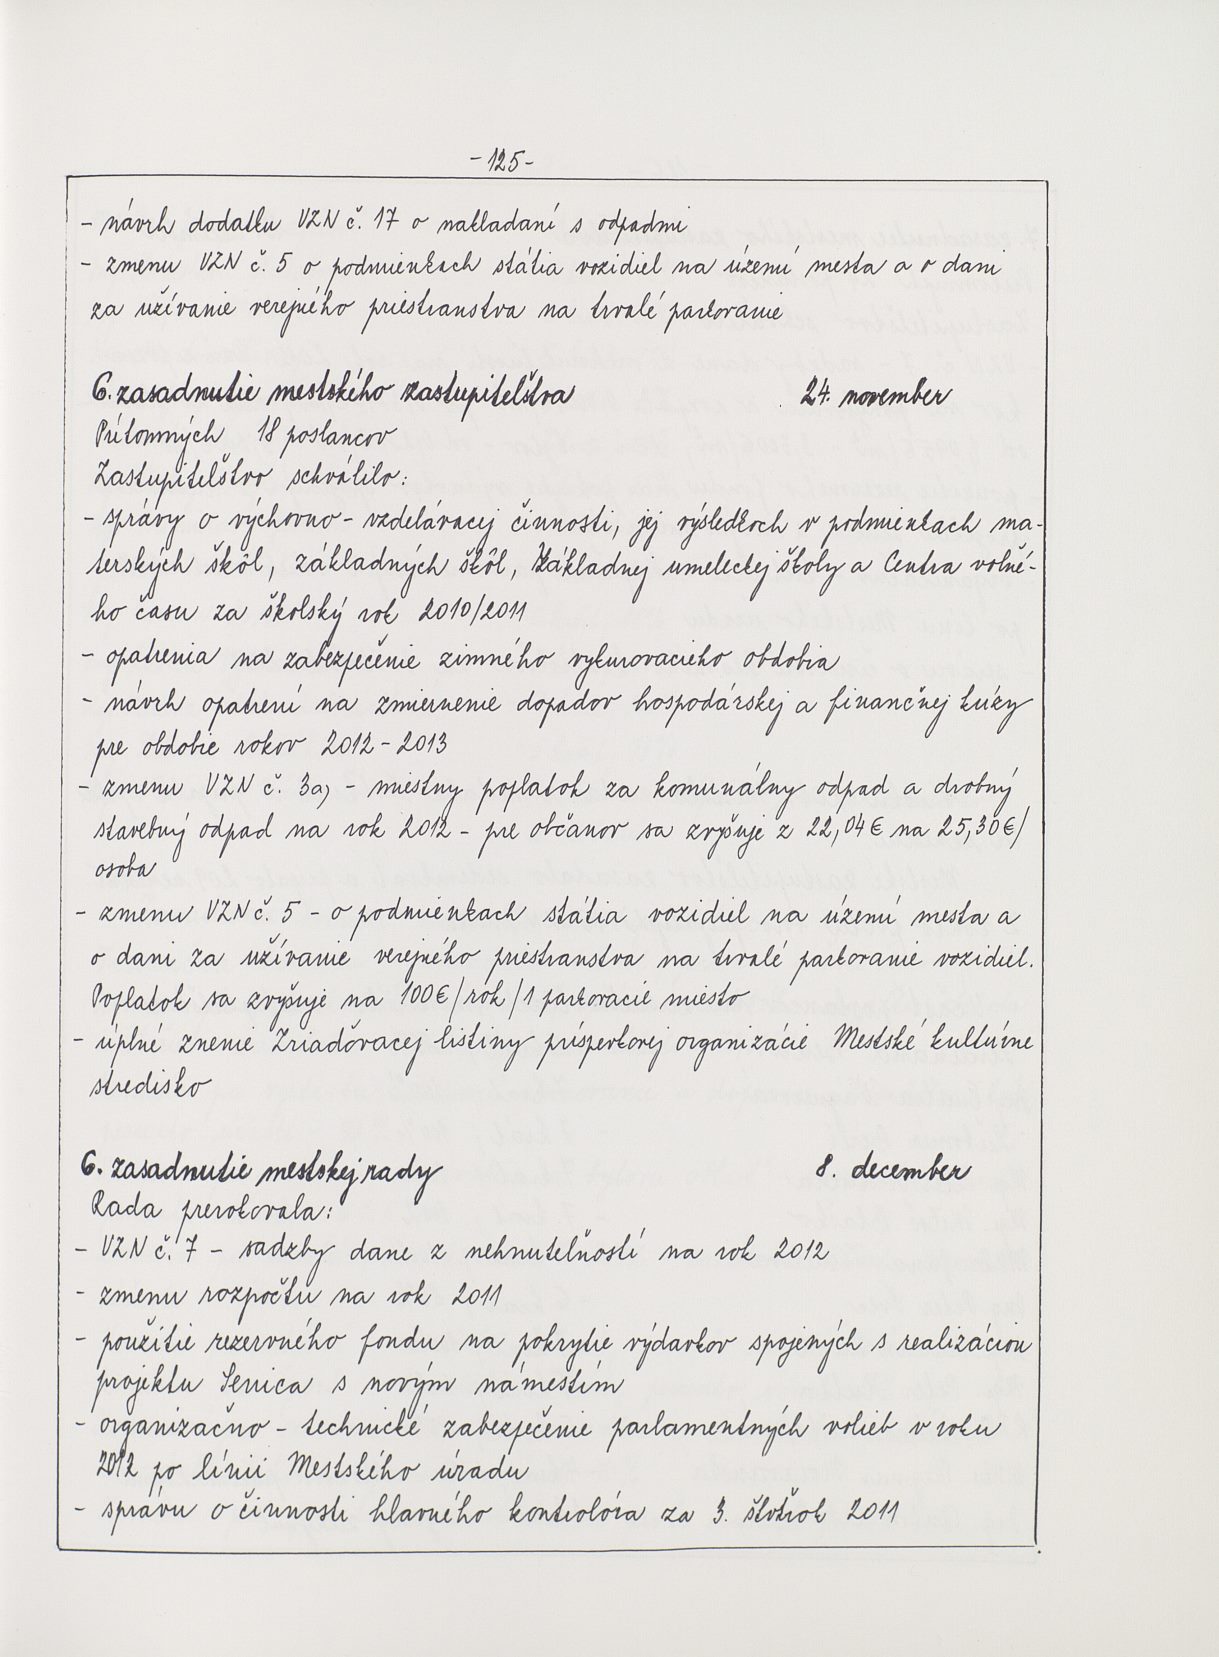 -125-
- návrh dodatku VZN č. 17 o nakladaní s odpadmi
- zmenu VZN č. 5 o podmienkach státia vozidiel na území mesta a o dani
za užívanie verejného priestranstva na trvalé parkovanie
6. zasadnutie mestského zastupiteľstva 24. november
Prítomných 18 poslancov
Zastupiteľstvo schválilo:
- správy o výchovno - vzdelávacej činnosti, jej výsledkoch v podmienkach ma-
terských škôl, základných škôl, Základnej umeleckej školy a Centra voľné-
ho času za školský rok 2010/2011
- opatrenia na zabezpečenie zimného vykurovacieho obdobia
- návrh opatrení na zmiernenie dopadov hospodárskej a finančnej krízy
pre obdobie rokov 2012 - 2013
- zmenu VZN č. 3a) - miestny poplatok za komunálny odpad a drobný
stavebný odpad na rok 2012 - pre občanov sa zvyšuje z 22,04 € na 25,30 €/
osoba
- zmenu VZN č. 5 - o podmienkach státia vozidiel na území mesta a
o dani za užívanie verejného priestranstva na trvalé parkovanie vozidiel.
Poplatok sa zvyšuje na 100 €/rok/1 parkovacie miesto
- úplné znenie Zriaďovacej listiny príspevkovej organizácie Mestské kultúrne
stredisko
6. zasadnutie mestskej rady 8. december
Rada prerokovala:
- VZN č. 7 - sadzby dane z nehnuteľností na rok 2012
- zmenu rozpočtu na rok 2011
- použitie rezervného fondu na pokrytie výdavkov spojených s realizáciou
projektu Senica s novým námestím
- organizačno - technické zabezpečenie parlamentných volieb v roku
2012 po línii Mestského úradu
- správu o činnosti hlavného kontrolóra za 3. štvťrok 2011